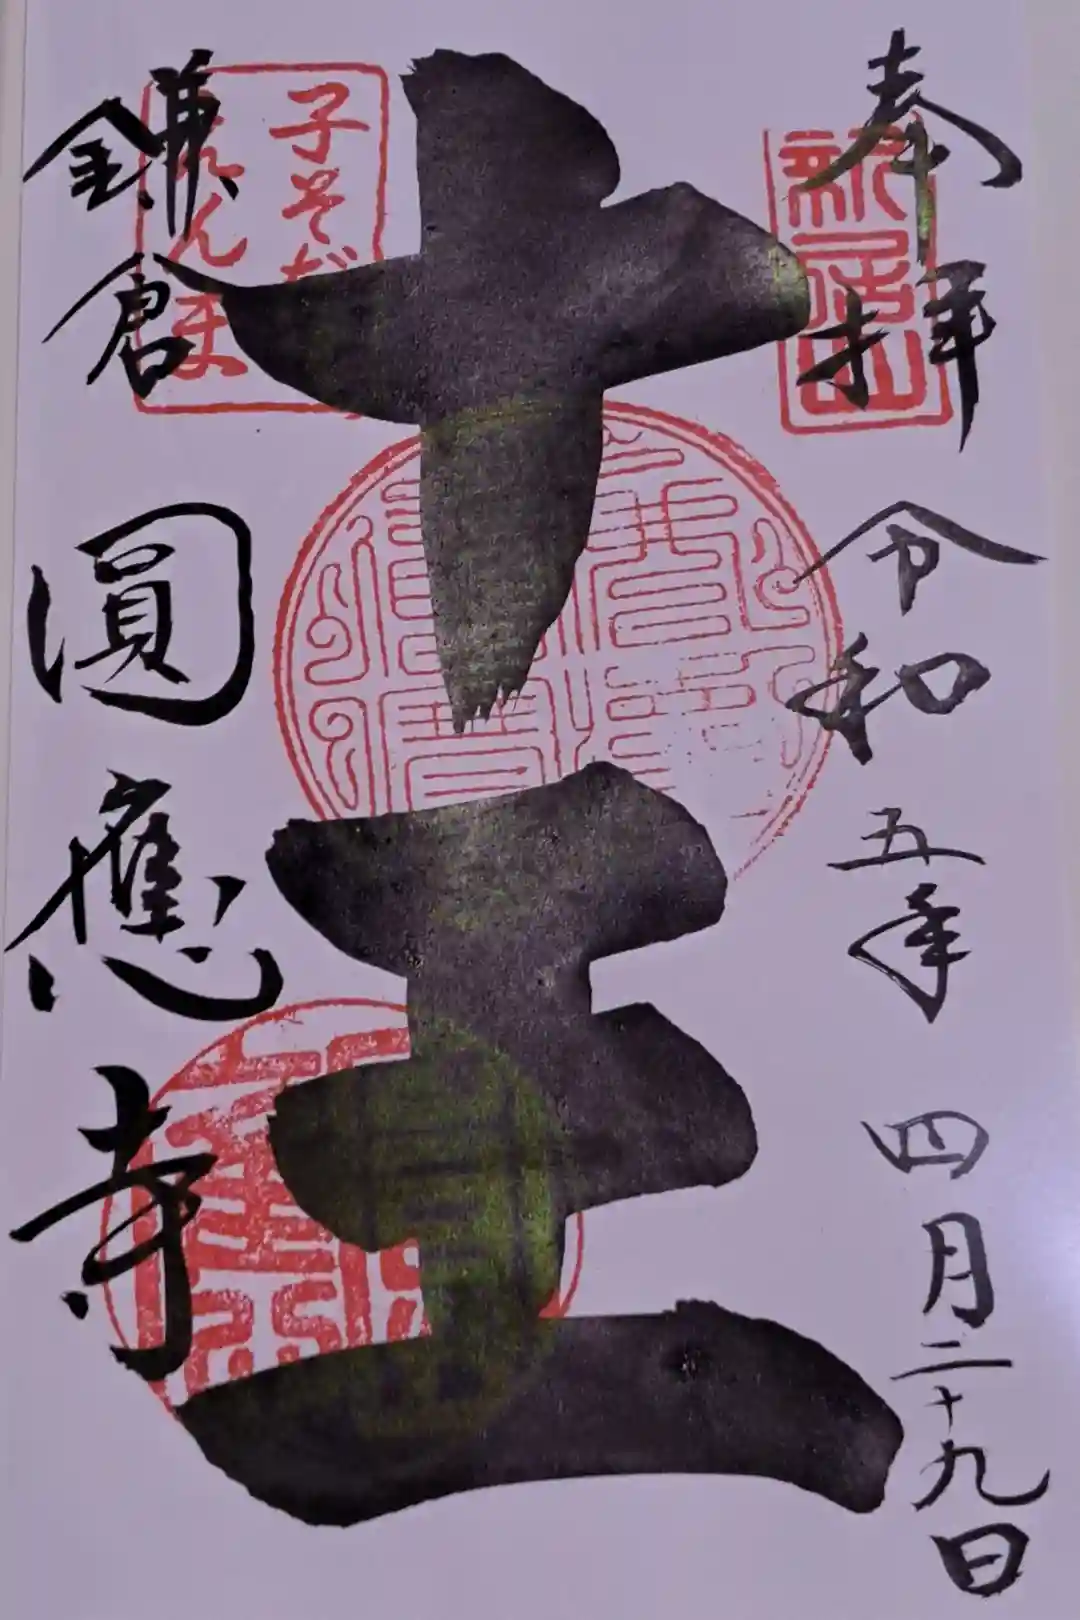 奉拝
令和五年
四月二十九日
新居山
十王
子そだ
えんま
鎌倉
圓應寺